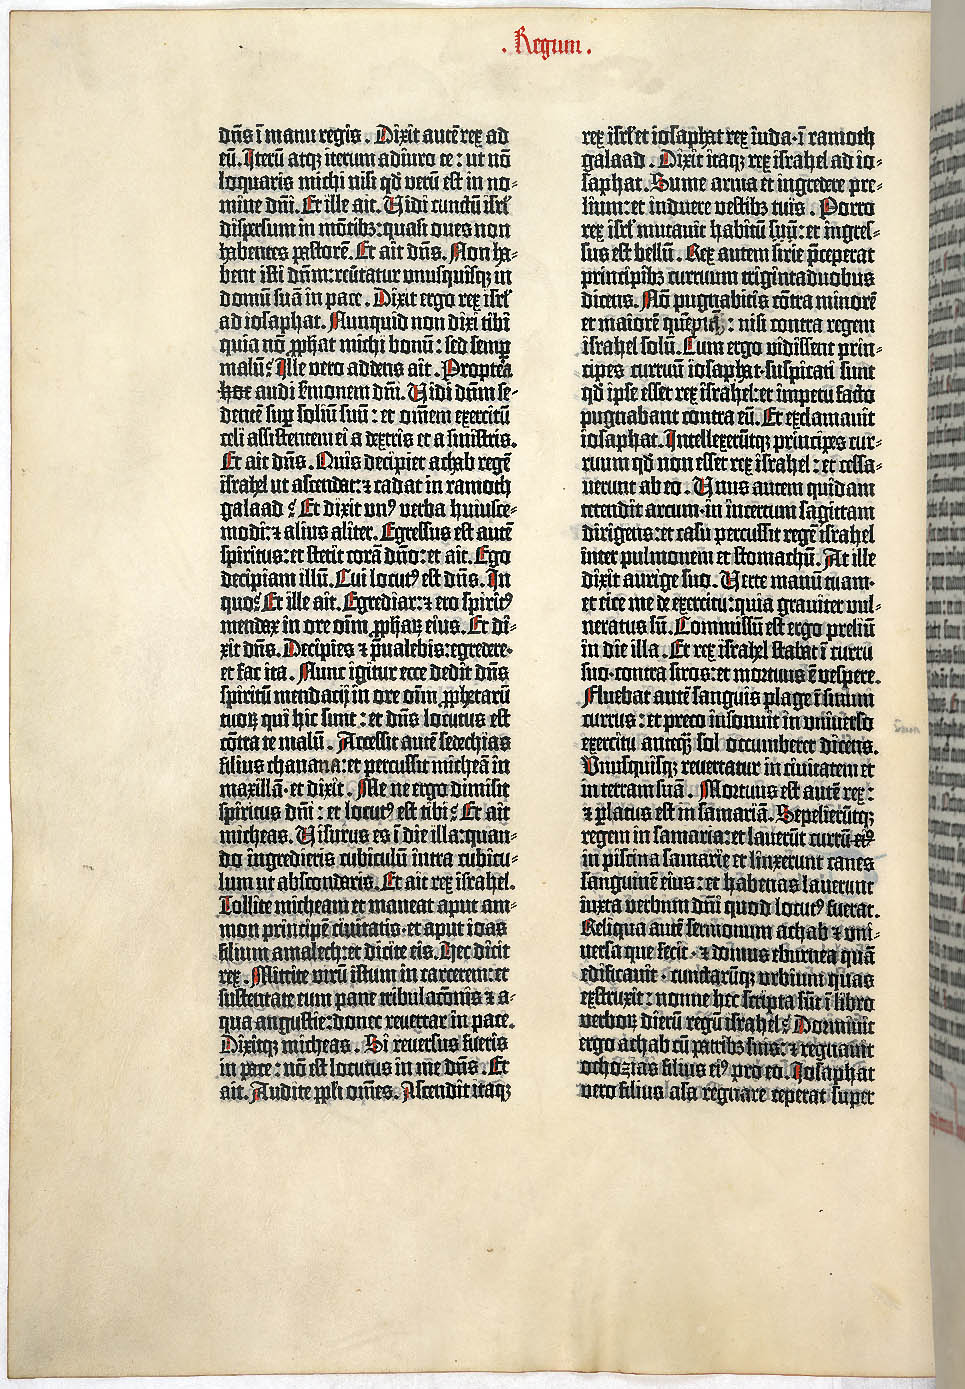 . Regum .
dn̄s ī manu regis . Dixit autē rex ad
eū . Iterū atqꝫ iterum adiuro te : ut nō
loquaris michi nisi qd̄ verū est in no-
mine dn̄i . Et ille ait . Vidi cunctū isrl̄
dispersum in mōtibꝫ : quasi oues non
habentes pastorē . Et ait dn̄s . Non ha-
bent isti dn̄m : reūtatur vnusquisqꝫ in
domū suā in pace . Dixit ergo rex isrl̄
ad iosaphat . Nunquid non dixi tibi
quia nō ꝓphat michi bonū : sed semꝑ
malū ? Ille vero addens ait . Propterea
hoc audi s̄monem dn̄i . Vidi dn̄m se-
dentē suꝑ soliū suū : et om̄em exercitū
celi assistentem ei a dextris et a sinistris .
Et ait dn̄s . Quis decipiet achab regē
israhel ut ascendat : ⁊ cadat in ramoth
galaad ? Et dixit unꝰ verba huiusce-
modi : ⁊ alius aliter . Egressus est autē
spiritus : et stetit corā dn̄o : et ait . Ego
decipiam illū . Cui locutꝰ est dn̄s . In
quo ? Et ille ait . Egrediar : ⁊ ero spiritꝰ
mendax in ore oīm ꝓphaꝝ eius . Et di-
xit dn̄s . Decipies ⁊ p̄ualebis : egredere ·
et fac ita . Nunc igitur ecce dedit dn̄s
spiritū mendacij in ore om̄ ꝓphetarū
tuoꝝ qui hic sunt : et dn̄s locutus est
cōtra te malū . Accessit autē sedechias
filius chanana : et percussit micheā in
maxillā · et dixit . Me ne ergo dimisit
spiritus dn̄i : et locutꝰ est tibi ? Et ait
micheas . Visurus es ī die illa : quan-
do ingredieris cubiculū intra cubicu-
lum ut abscondaris . Et ait rex israhel .
Tollite micheam et maneat aput am-
mon principē ciuitatis · et aput ioas
filium amalech : et dicite eis . Hec dicit
rex . Mittite virū istum in carcerem : et
sustentate eum pane tribulacōnis ⁊ a-
qua angustie : donec reuertar in pace .
Dixitqꝫ micheas . Si reuersus fueris
in pace : nō est locutus in me dn̄s . Et
ait . Audite ppl̄i om̄es . Ascendit itaqꝫ
rex isrl̄ et iosaphat rex iuda · ī ramoth
galaad . Dixit itaqꝫ rex israhel ad io-
saphat . Sume arma et ingredere pre-
lium : et induere vestibꝫ tuis . Porro
rex isrl̄ mutauit habitū suū : et ingres-
sus est bellū . Rex autem sirie p̄ceperat
principibꝫ curruum trigintaduobus
dicens . Nō pugnabitis cōtra minorē
et maiorē quēpiā : nisi contra regem
israhel solū . Cum ergo vidissent prin-
cipes curruū iosaphat · suspicati sunt
qd̄ ipse esset rex israhel : et impetu facto
pugnabant contra eū . Et exclamauit
iosaphat . Intellexerūtqꝫ principes cur-
ruum qd̄ non esset rex israhel : et cessa-
uerunt ab eo . Vnus autem quidam
tetendit arcum · in incertum sagittam
dirigens : et casu percussit regē israhel
inter pulmonem et stomachū . At ille
dixit aurige suo . Verte manū tuam ·
et eice me de exercitu : quia grauiter vul-
neratus sū . Commissū est ergo preliū
in die illa . Et rex israhel stabat ī curru
suo · contra siros : et mortuus ē vespere .
Fluebat autē sanguis plage ī sinum
currus : et preco insonuit in vniuerso
exercitu anteqꝫ sol occumberet dicens .
Vnusquisqꝫ reuertatur in ciuitatem et
in terram suā . Mortuus est autē rex :
⁊ ꝑlatus est in samariā . Sepelierūtqꝫ
regem in samaria : et lauerūt currū eiꝰ
in piscina samarie et linxerunt canes
sanguinē eius : et habenas lauerunt
iuxta verbum dn̄i quod locutꝰ fuerat .
Reliqua autē sermonum achab ⁊ vni-
uersa que fecit · ⁊ domus eburnea quā
edificauit · cunctarūqꝫ vrbium quas
exstruxit : nonne hec scripta sūt ī libro
verboꝝ dierū regū israhel ? Dormiuit
ergo achab cū patribꝫ suis : ⁊ regnauit
ochozias filius eiꝰ pro eo . Iosaphat
vero filius asa regnare ceperat super